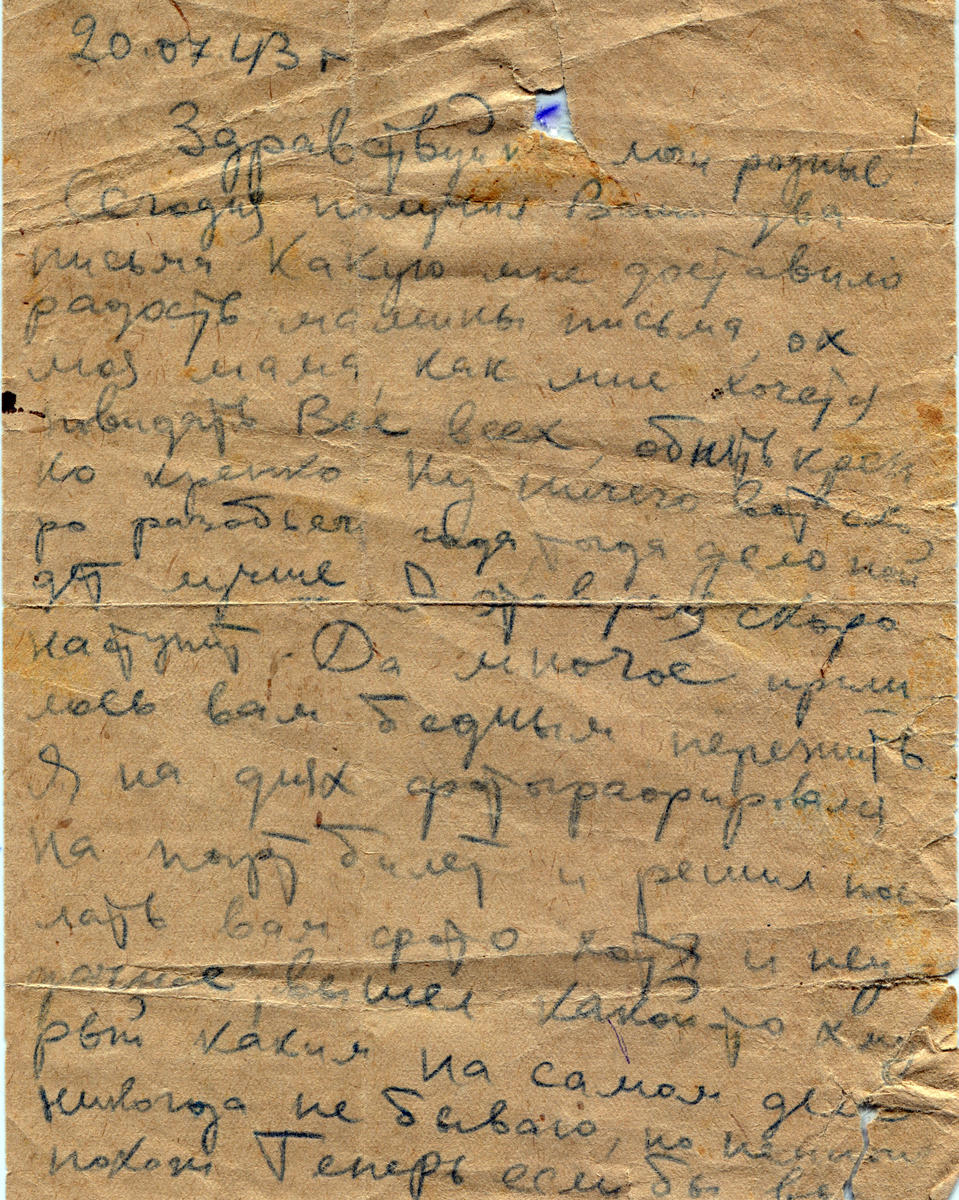 20.07.43 г
Здравствуйте мои родные!
Сегодня получил Ваши два
письма Какую мне доставило
радость мамины письма, ох
моя мама, как мне хочется
повидать Вас всех, обнять креп
ко крепко Ну ничего вот ско
ро разобьем гада тогда дело пой
дет лучше А это время скоро
наступит. Да многое приш
лось вам бедным пережить
Я на днях фотографировался
на парт билет и решил пос
лать вам фото хотя и неу
дачное, вышел какой-то хму
рый каким на самом деле
никогда не бываю, но
похож Теперь если бы